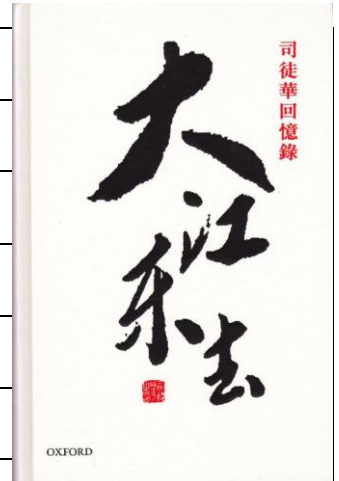 司徒華回憶錄
大江东去
OXFORD